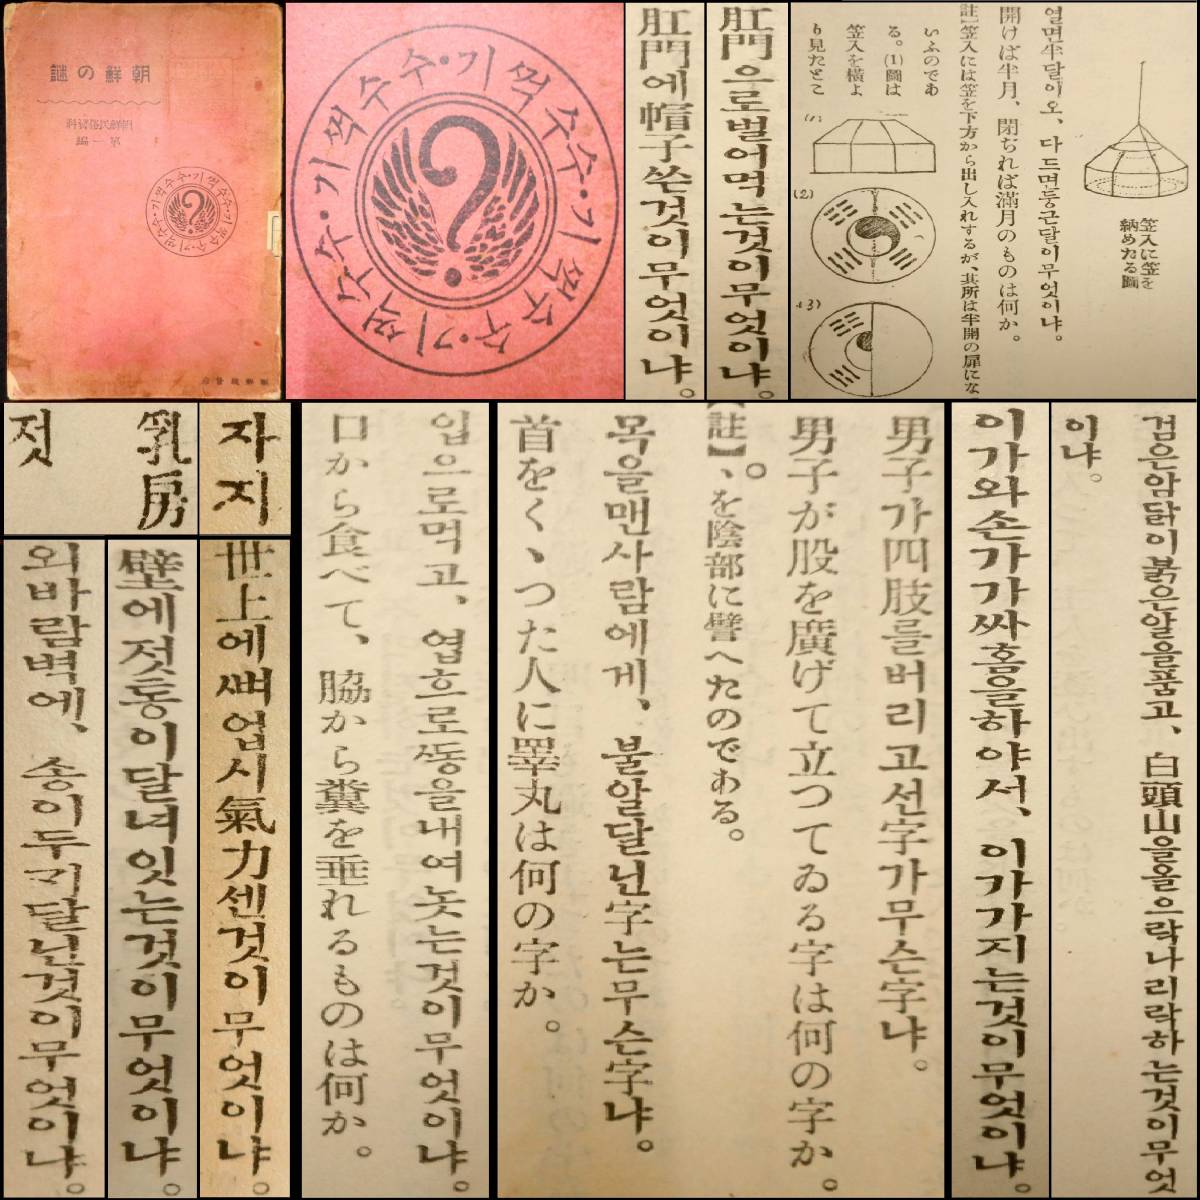 朝鮮の謎
朝鮮民俗資料
第一編
수수·기꺽수수·기꺽수수·기꺽수수·기꺽
朝鮮總督府
수수·기꺽수수·기꺽수수·기꺽수수·기꺽
肛門에帽子쓴것이무엇이냐。
肛門으로벌어먹는것이무엇이냐。
笠入に笠を
納めたる圖
열면半달이오、다드면둥근달이무엇이냐。
開けば半月、閉ぢれば滿月のものは何か。
註】笠入には笠を下方から出し入れするが、其所は半開の扉にな
いふのであ
る。(1)圖は
笠入を橫よ
り見たとこ
(1)
(2)
(3)
乳房
젓
자지
외바람벽에、송이두 달닌것이무엇이냐。
壁에젓통이달녀잇는것이무엇이냐。
世上에뼈업시氣力센것이무엇이냐。
입으로먹고、엽흐로똥을내여놋는것이무엇이냐。
口から食べて、脇から糞を垂れるものは何か。
男子가四肢를버리고선字가무슨字냐。
男子が股を廣げて立つてゐる字は何の字か。
【註】、を陰部に譬へたのである。
목을맨사람에게、불알달닌字는무슨字냐。
首をくゝつた人に睪丸は何の字か。
이가와손가가싸홈을하야서、이가가지는것이무엇이냐。
검은암닭이붉은알을품고、白頭山을올으락나리락하는것이무엇
이냐。